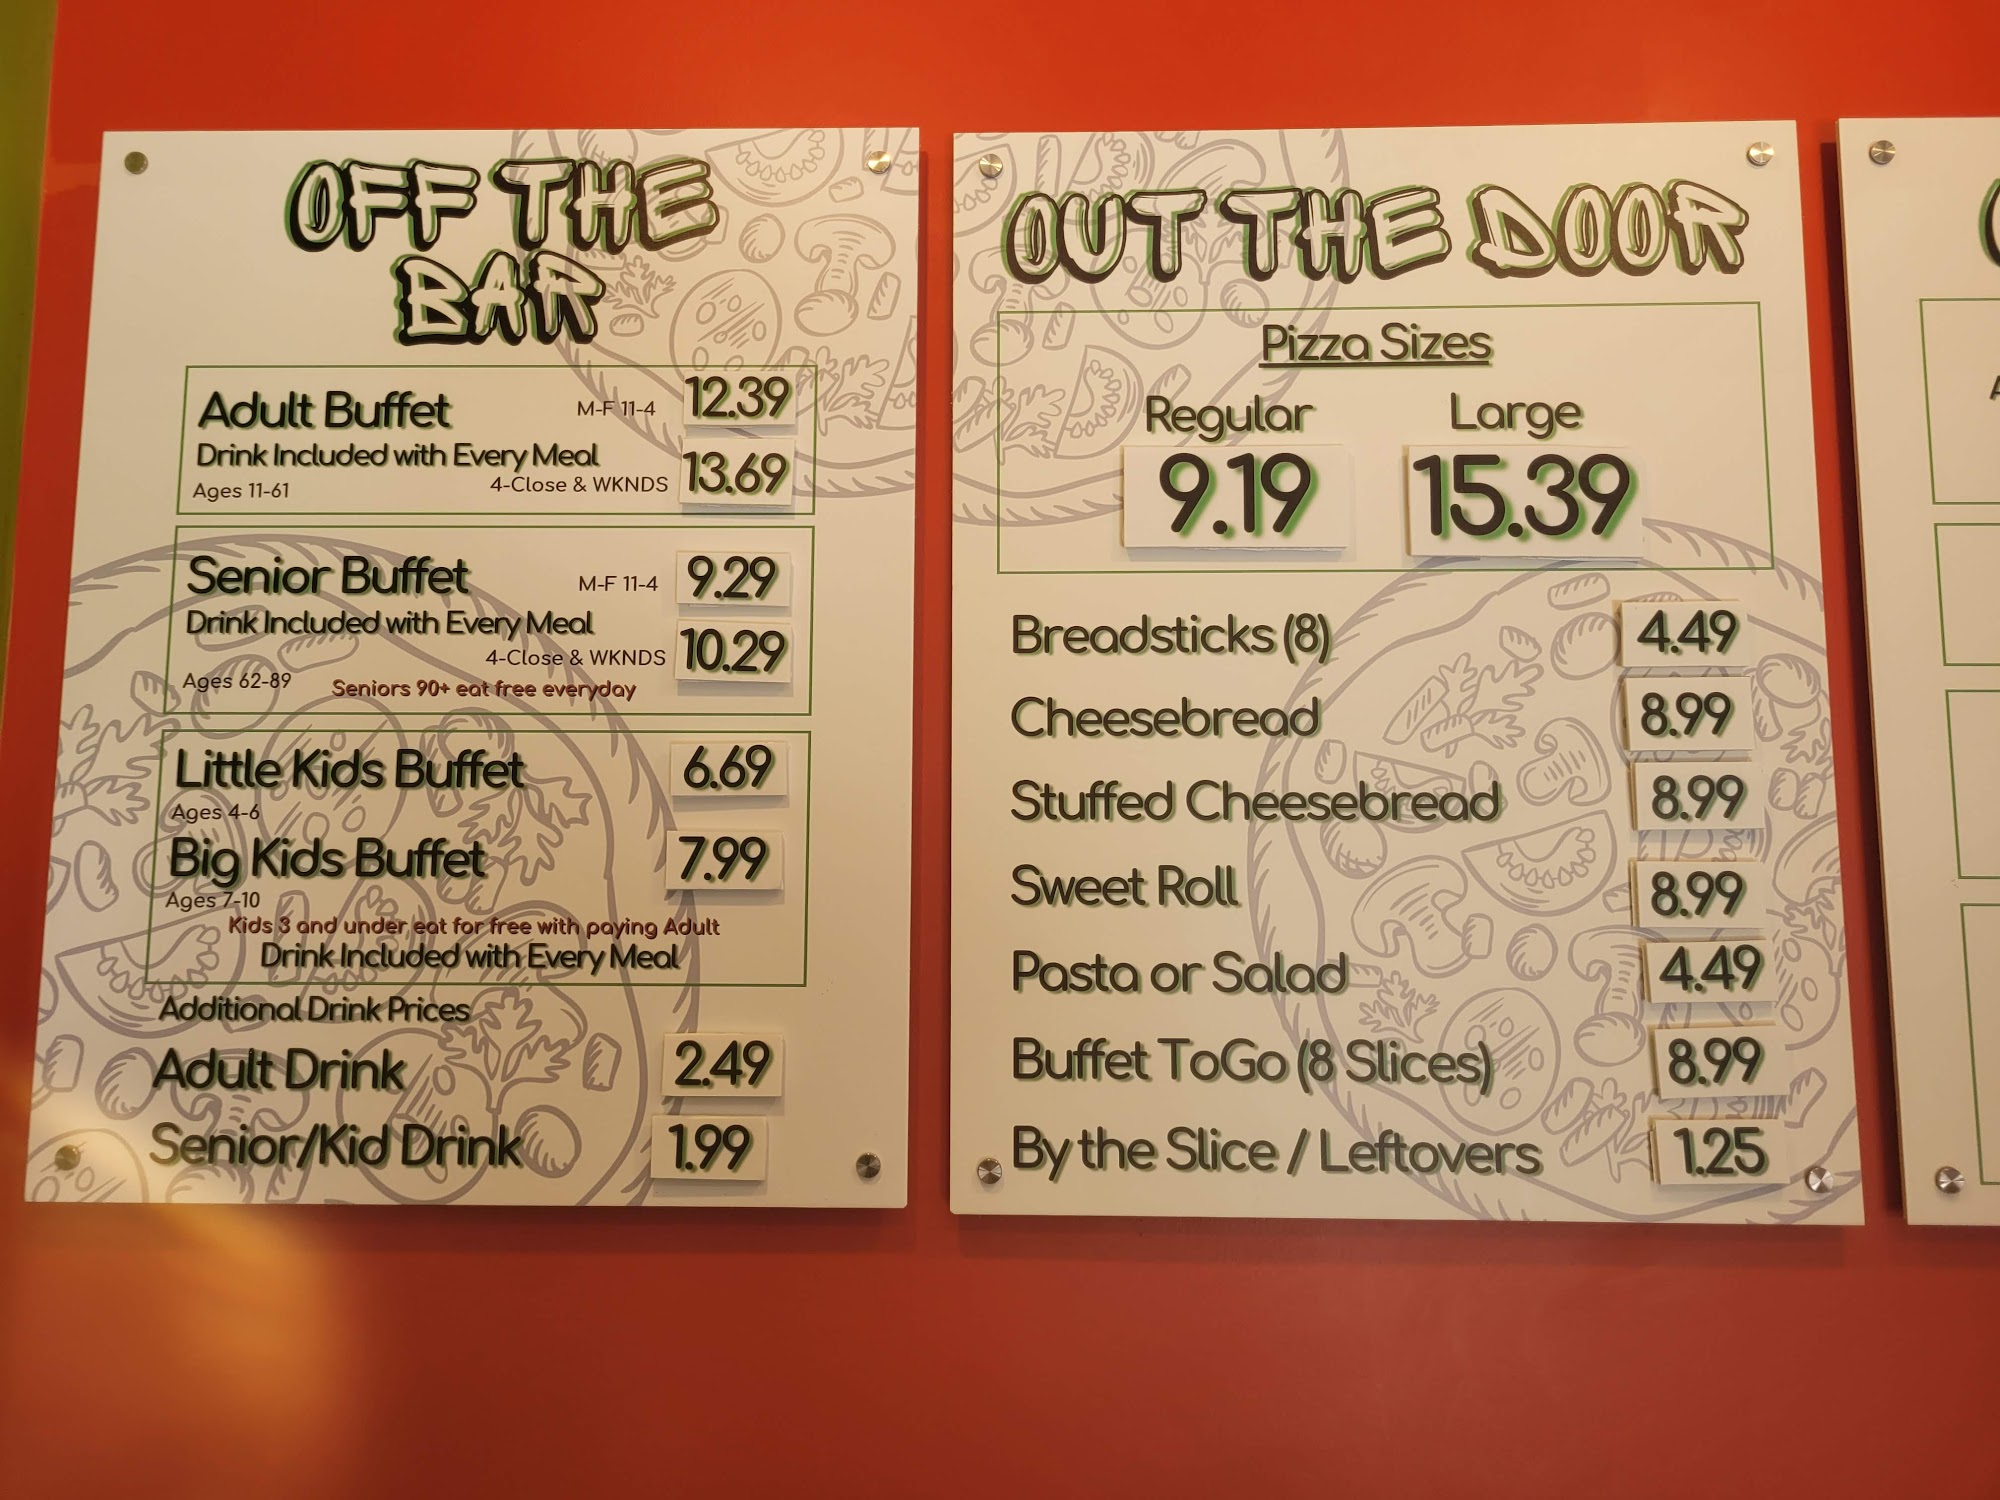 OFF THE
BAR
Adult Buffet M-F 11-4 12.39
Drink Included with Every Meal
Ages 11-61 4-Close & WKNDS 13.69
Senior Buffet M-F 11-4 9.29
Drink Included with Every Meal
4-Close & WKNDS 10.29
Ages 62-89 Seniors 90+ eat free everyday
Little Kids Buffet 6.69
Ages 4-6
Big Kids Buffet 7.99
Ages 7-10
Kids 3 and under eat for free with paying Adult
Drink Included with Every Meal
Additional Drink Prices
Adult Drink 2.49
Senior/Kid Drink 1.99
OUT THE DOOR
Pizza Sizes
Regular Large
9.19 15.39
Breadsticks (8) 4.49
Cheesebread 8.99
Stuffed Cheesebread 8.99
Sweet Roll 8.99
Pasta or Salad 4.49
Buffet ToGo (8 Slices) 8.99
By the Slice / Leftovers 1.25